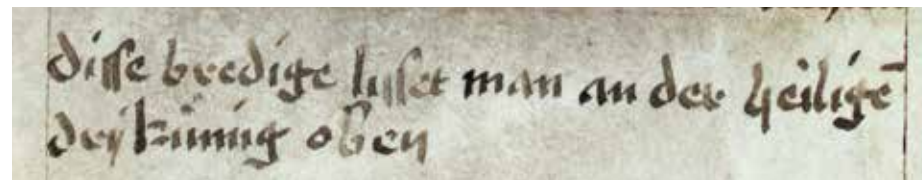 disse bredige lisset man an der heiligē
drÿ küning oben